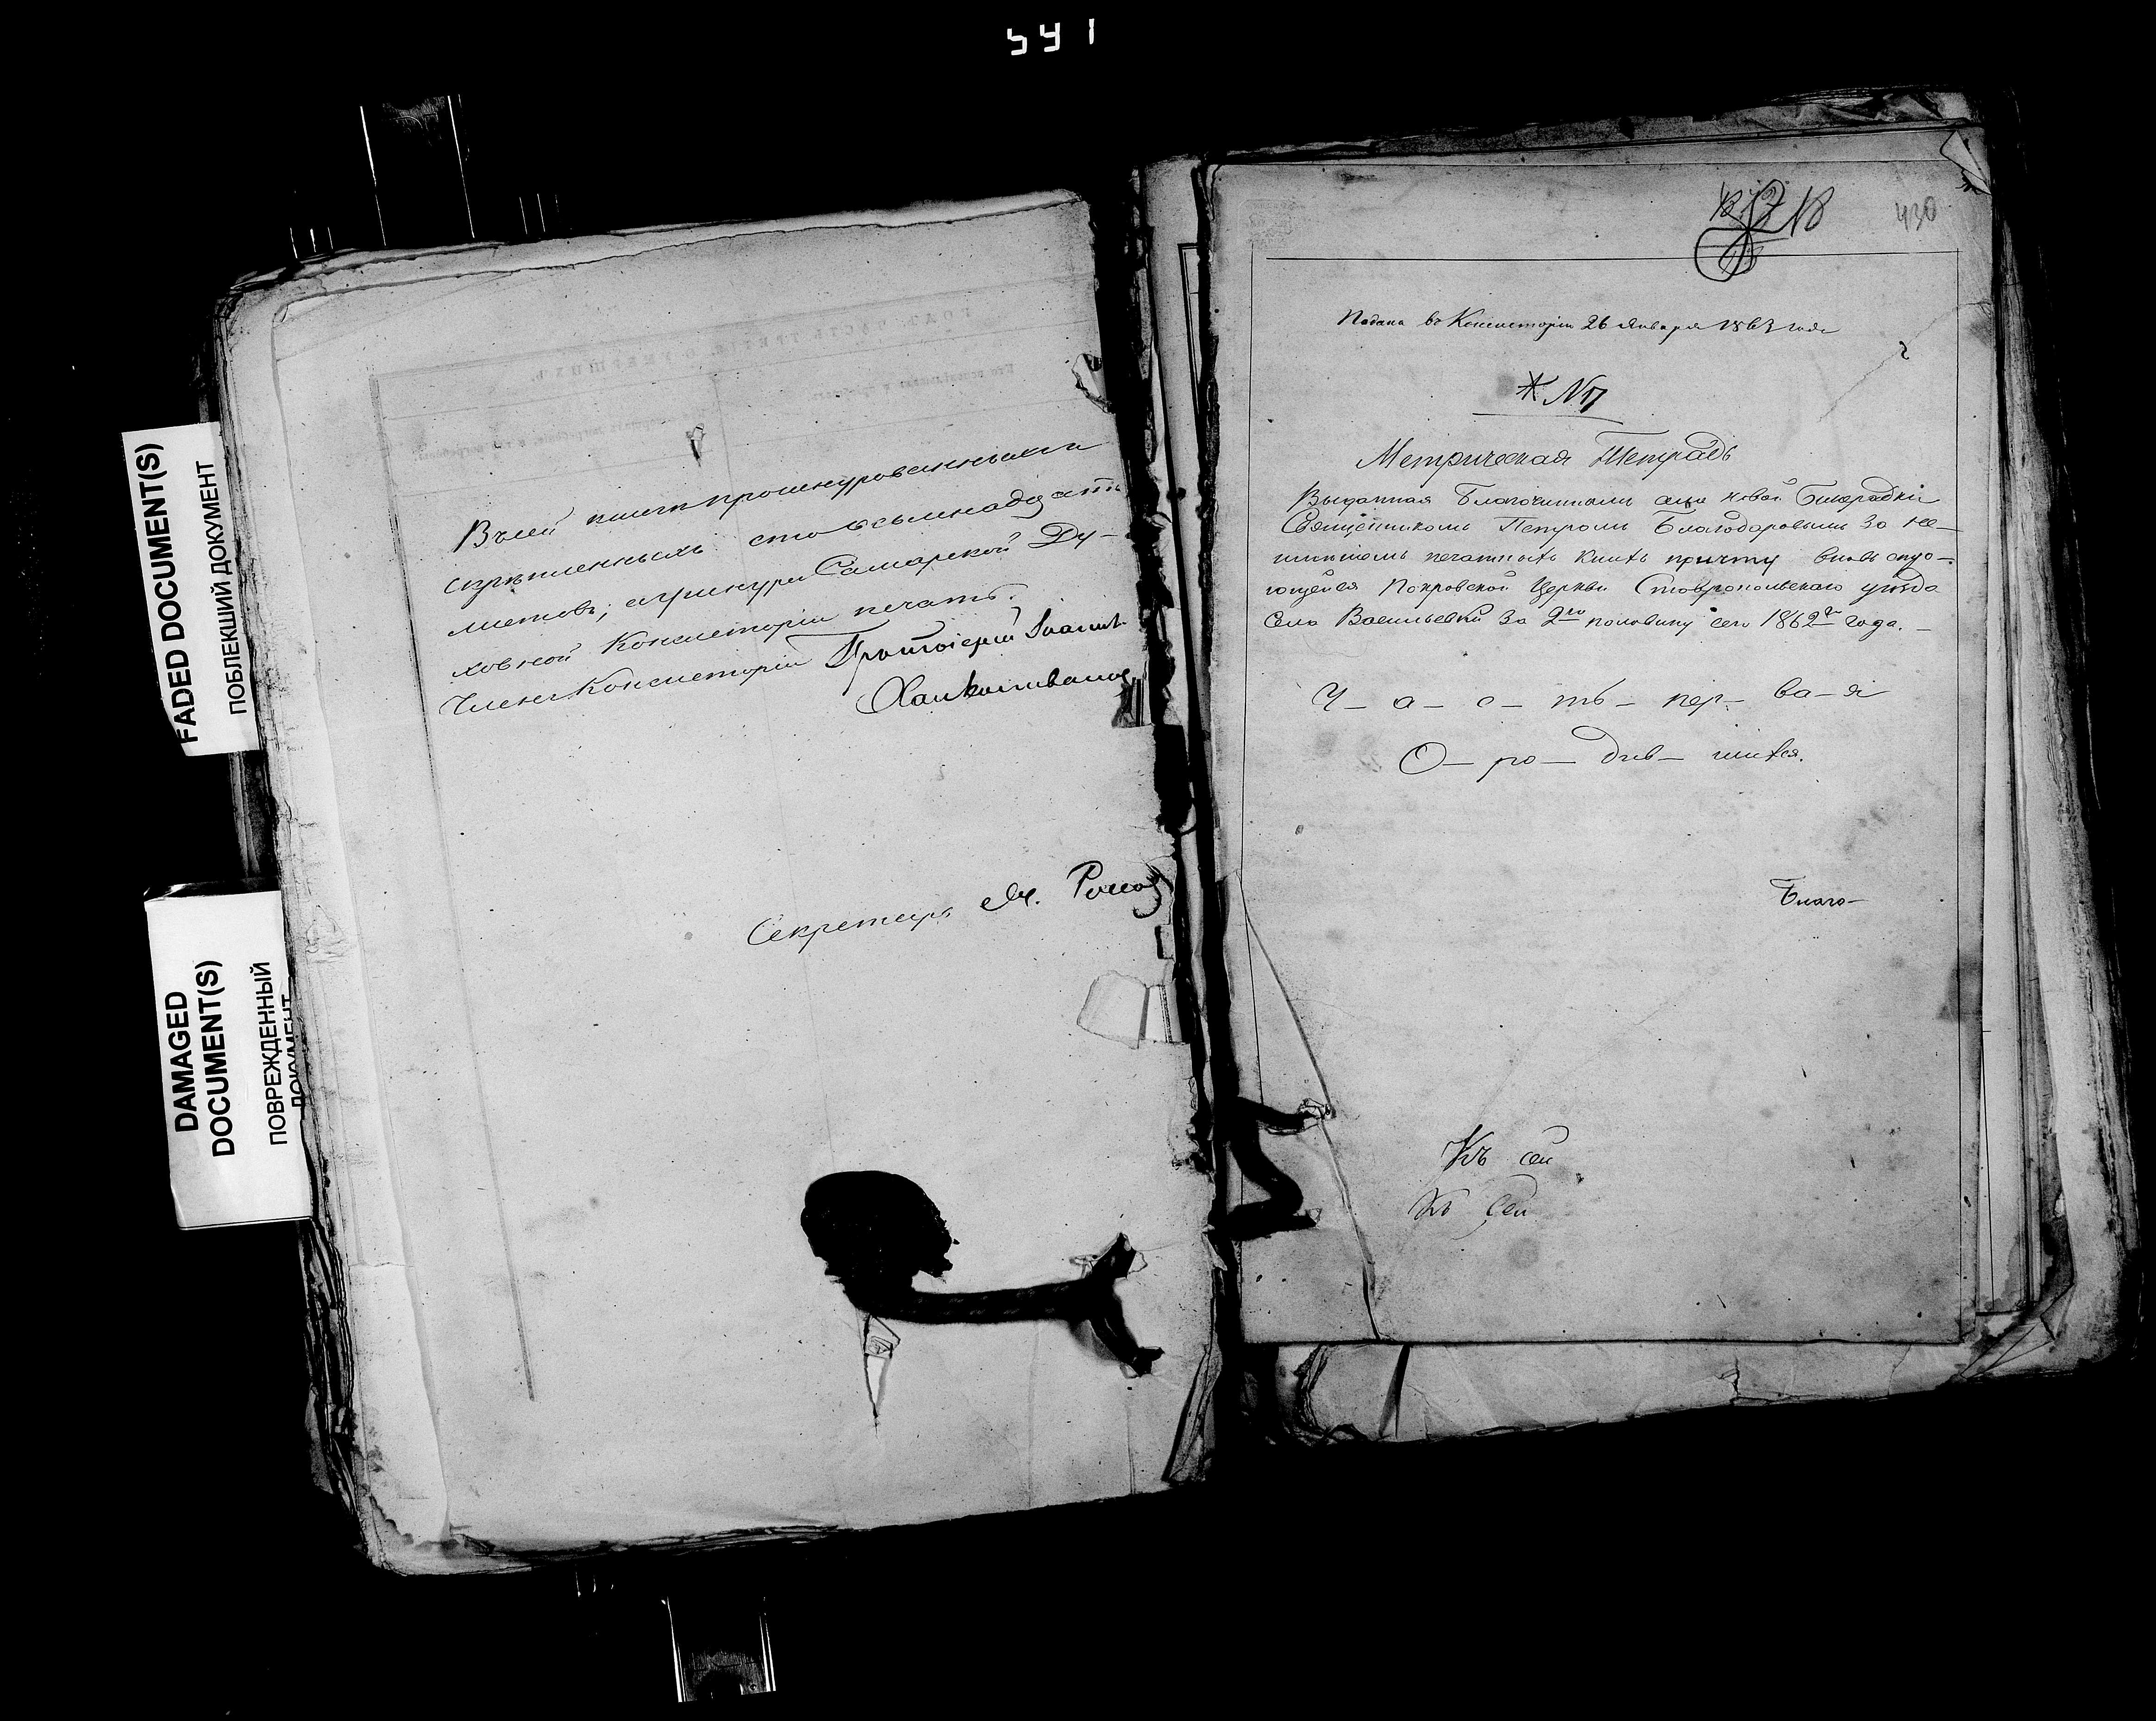 541
FADED DOCUMENT(S)
ПОБЛЕКШИЙ ДОКУМЕНТ
DAMAGED
DOCUMENT(S)
ПОВРЕЖДЕННЫЙ
ДОКУМЕНТ
Въ сей книге прошнурованныхъ и
скрѣпленныхъ сто восьмнадцать
листовъ; а у шнура Самарской Ду-
ховной Консисторіи печать.
Членъ Консисторіи Протоіерей Іоаннъ
Секретарь
430
Подана въ Консисторію 26 Января 1863 года
Метрическая Тетрадь
Выданная Благочиннымъ села Новой Бинарадки
Священникомъ Петромъ Благодаровымъ за не-
имѣніемъ печатныхъ книгъ причту вновь
Покровской Церкви Ставропольскаго уѣзда
Села Васильевки за 2ую половину сего 1862го года.
Ч- а- с- ть- пер- ва-я
О- ро- див- шихся.
Благо-
Къ сей
Къ сей